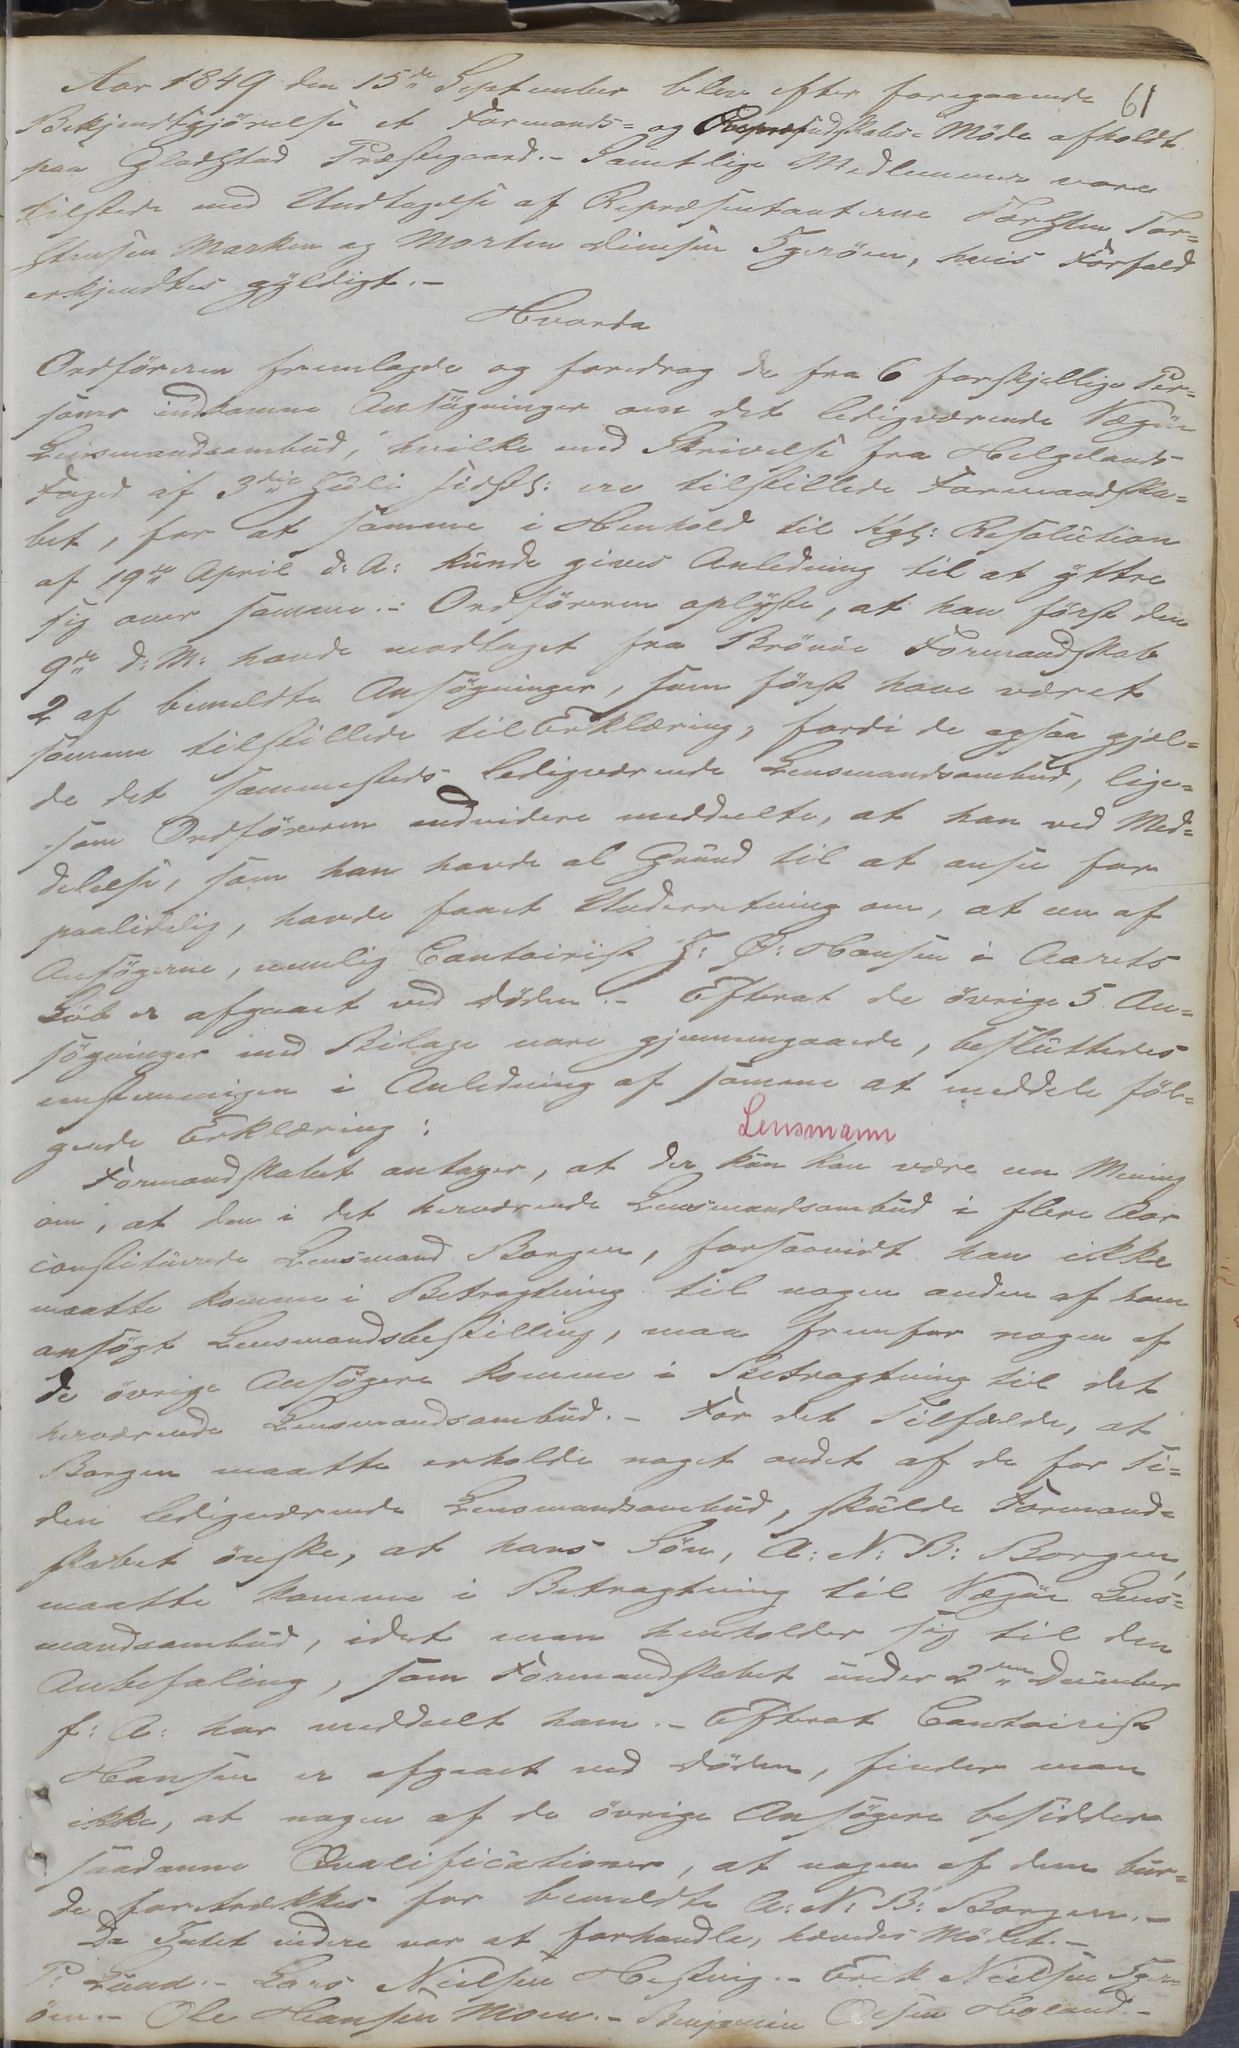 61
Aar 1849 den 15de September blev efter foregaaende
Bekjendtgjörelse et Formands- og Repræsentskabs-Möde afholdt
paa Gladstad Præstegaard.- Samtlige Medlemmer vare
tilstede med Undtagelse af Repræsentanterne Torsten Tor-
stensen Marken og Morten Dinesen Ygeröen, hvis Forfald
erkjendtes gyldigt.-
Hvorda
Ordföreren fremlagde og foredrog de fra 6 forskjellige Per-
soner indkomne Ansögninger om det ledigværende Vegöe
Lensmandsombud, hvilke med Skrivelse fra Helgelands
Foged af 3die Juli sidstl: ere tilstillede Formandska-
bet, for at samme i Henhold til Kgl: Resolution
af 19de April d: A: kunde gives Anledning til at yttre
sig over samme.- Ordföreren oplyste, at han först den
9de d: M: havde modtaget fra Brönöe Formandskab
2 af bemeldte Ansögninger, som först have været
samme tilstillede til Erklæring, fordi de ogsaa gjæl-
de det sammesteds ledigværende Lensmandsombud, lige-
som Ordföreren endvidere meddeelte, at han ved Med-
delelse, som han havde al Grund til at ansee for
paalidelig, havde faaet Underretning om, at en af
Ansögerne, nemlig Contoirist J: P: Hansen i Aarets
Löb er afgaaet ved Döden.- Efterat de övrige 5 An-
sögninger med Bilage vare gjennemgaaede, besluttedes
eenstemmigen i Anledning af samme at meddele föl-
gende Erklæring:
Lensmann
Formandskabet antager, at der kun kan være een Mening
om, at den i det herværende Lensmandsombud i flere Aar
constituerede Lensmand Borgen, forsaavidt han ikke
maatte komme i Betragtning til nogen anden af ham
ansögt Lensmandsbestilling, maa fremfor nogen af
de övrige Ansögere komme i Betragtning til det
herværende Lensmandsombud.- For det Tilfælde, at
Borgen maatte erholde noget andet af de for Ti-
den ledigværende Lensmandsombud, skulde Formand-
skabet önske, at hans Sön, A: N: B: Borgen,
maatte komme i Betragtning til Vegöe Lens-
mandsombud, idet man henholder sig til den
Anbefaling, som Formandskabet under 2den December
f: A: har meddeelt ham.- Efterat Contoirist
Hansen er afgaaet ved Döden, finder man
ikke, at nogen af de övrige Ansögere besidder
saadanne Qvalificationer, at nogen af dem bur-
de foretrækkes for bemeldte A: N: B: Borgen.-
Da Intet videre var at forhandle, hævedes Mödet.-
P: Lund.- Lars Nielsen Hestvig.- Erik Nielsen Yger-
öen.- Ole Hansen Moen.- Benjamin Olsen Höland.-